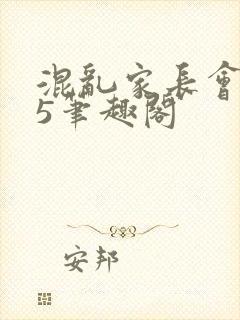 混亂家長會
5筆趣閣
安邦